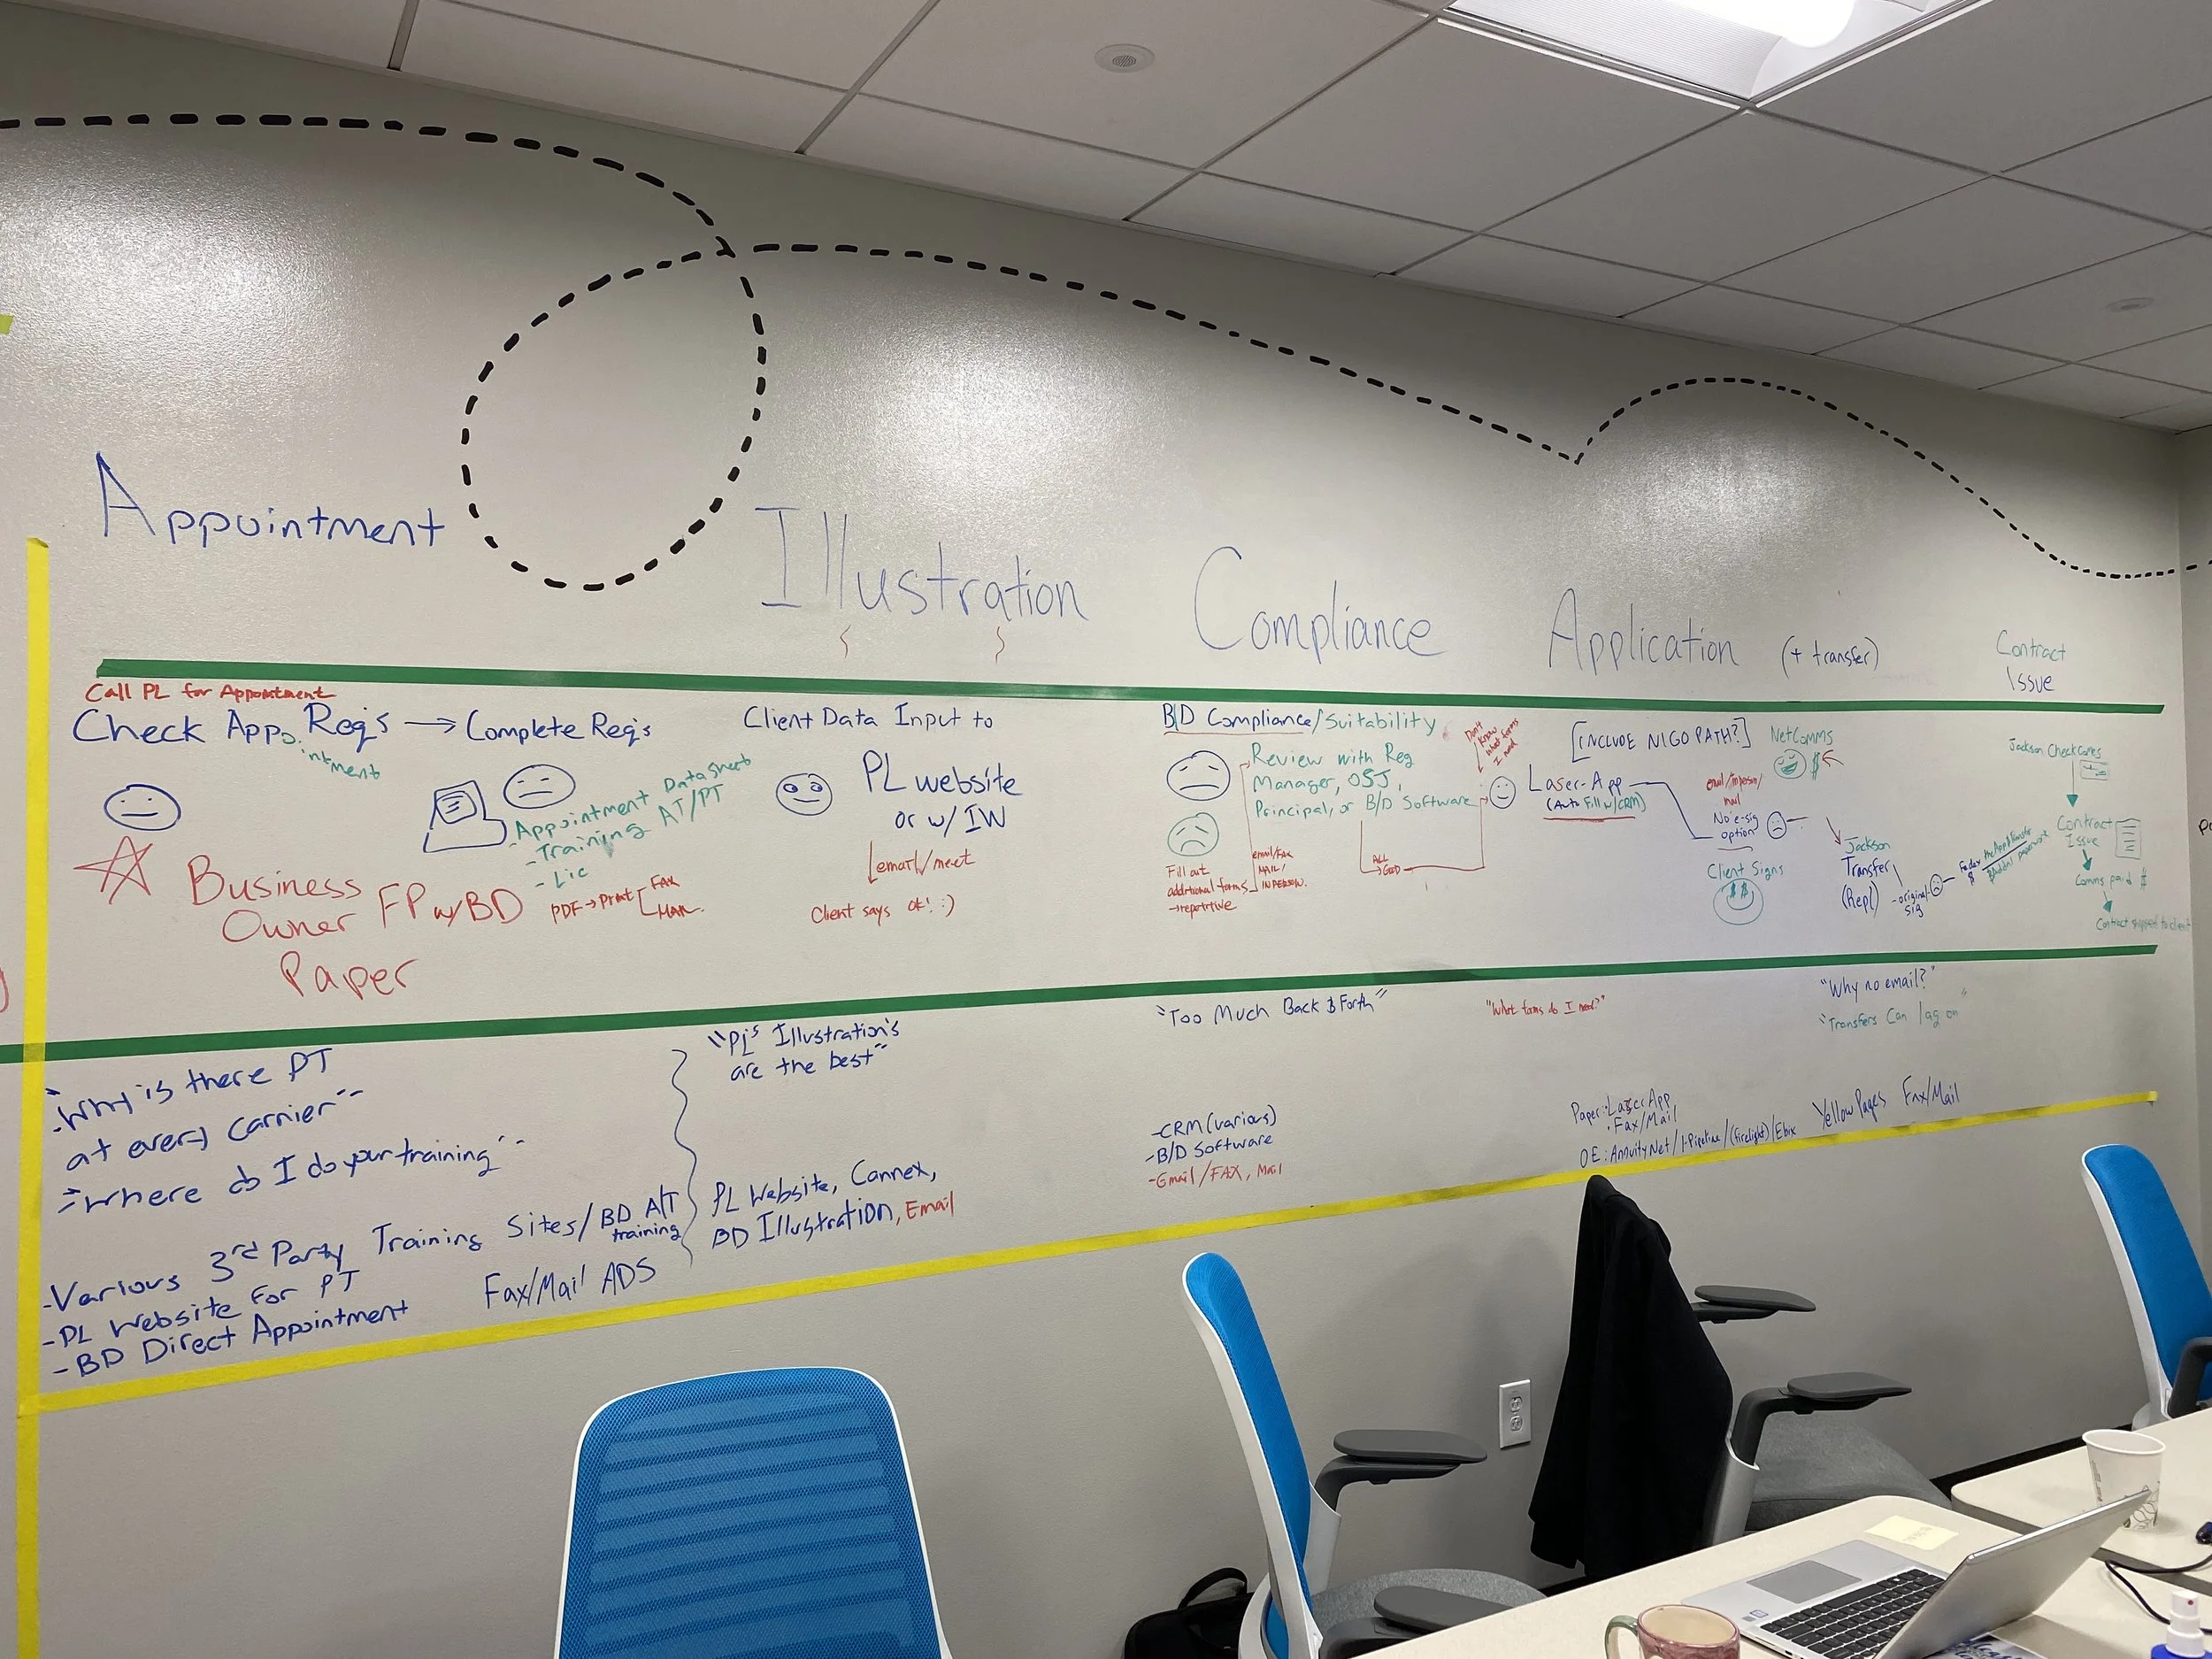 Appointment
Illustration
Compliance
Application (+ transfer)
Contract
Issue
Call PL for Appointment
Check App. Req's → Complete Req's
ointment
- Appointment Data Sheet
- Training AT/PT
- Lic
PDF → Print [ FAX
MAIL
Business
Owner FP w/BD
Paper
Client Data Input to
PL website
or w/ IW
email/meet
Client says ok! :)
B/D Compliance/Suitability
Review with Reg
Manager, OSJ,
Principal, or B/D Software
Fill out
additional forms
→ repetitive
email/FAX
MAIL/
IN PERSON.
ALL
GOOD
Don't
know
what forms
I need
[INCLUDE NIGO PATH?]
Laser-App
(Auto Fill w/CRM)
NetComms
$
email/inperson/
mail
No e-sig
option
Client Signs
$$
Jackson
Transfer
(Repl)
- original
sig
Jackson Check comes
Contract
Issue
Comms paid $
Contract shipped to client
"Why is there PT
at every carrier"
"Where do I do your training"
"PL's Illustration's
are the best"
"Too Much Back & Forth"
"What forms do I need?"
"Why no email?"
"Transfers Can lag on"
- Various 3rd Party Training Sites/BD A/T
training
- PL Website for PT
- BD Direct Appointment
Fax/Mail ADS
PL Website, Cannex,
BD Illustration, Email
- CRM (various)
- B/D Software
- Email/FAX, Mail
Paper: Laser App
. Fax/Mail
OE: AnnuityNet/I-Pipeline/(Firelight)/Ebix
Yellow Pages Fax/Mail